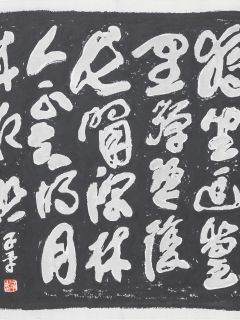 獨坐幽篁
里彈琴復
长嘯深林
人不知明月
來相照